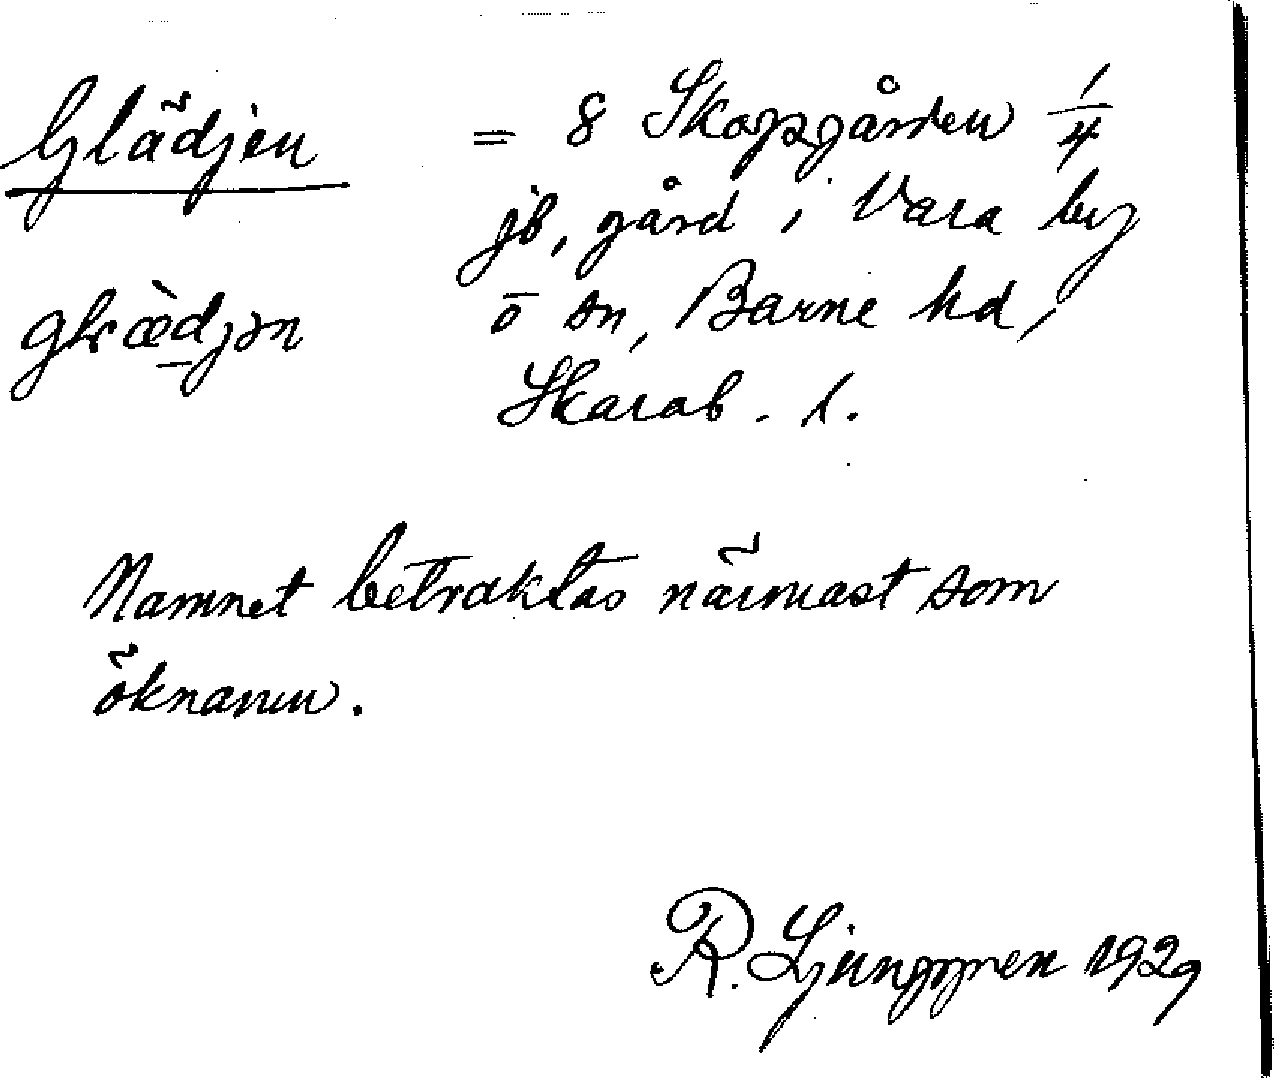 Glädjen = 8 Skogsgården 1/4
jb, gård i Vara by
glædjən ō sn, Barne hd,
Skarab. l.
Namnet betraktas närmast som
öknamn.
R. Ljunggren 1929